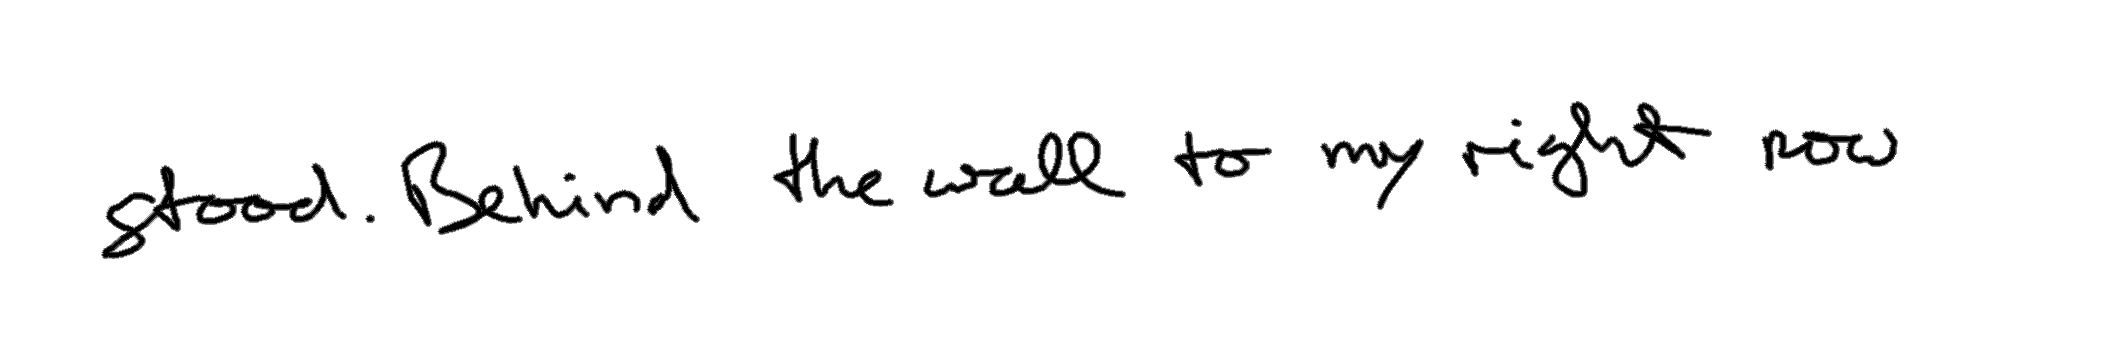 stood. Behind the wall to my right now